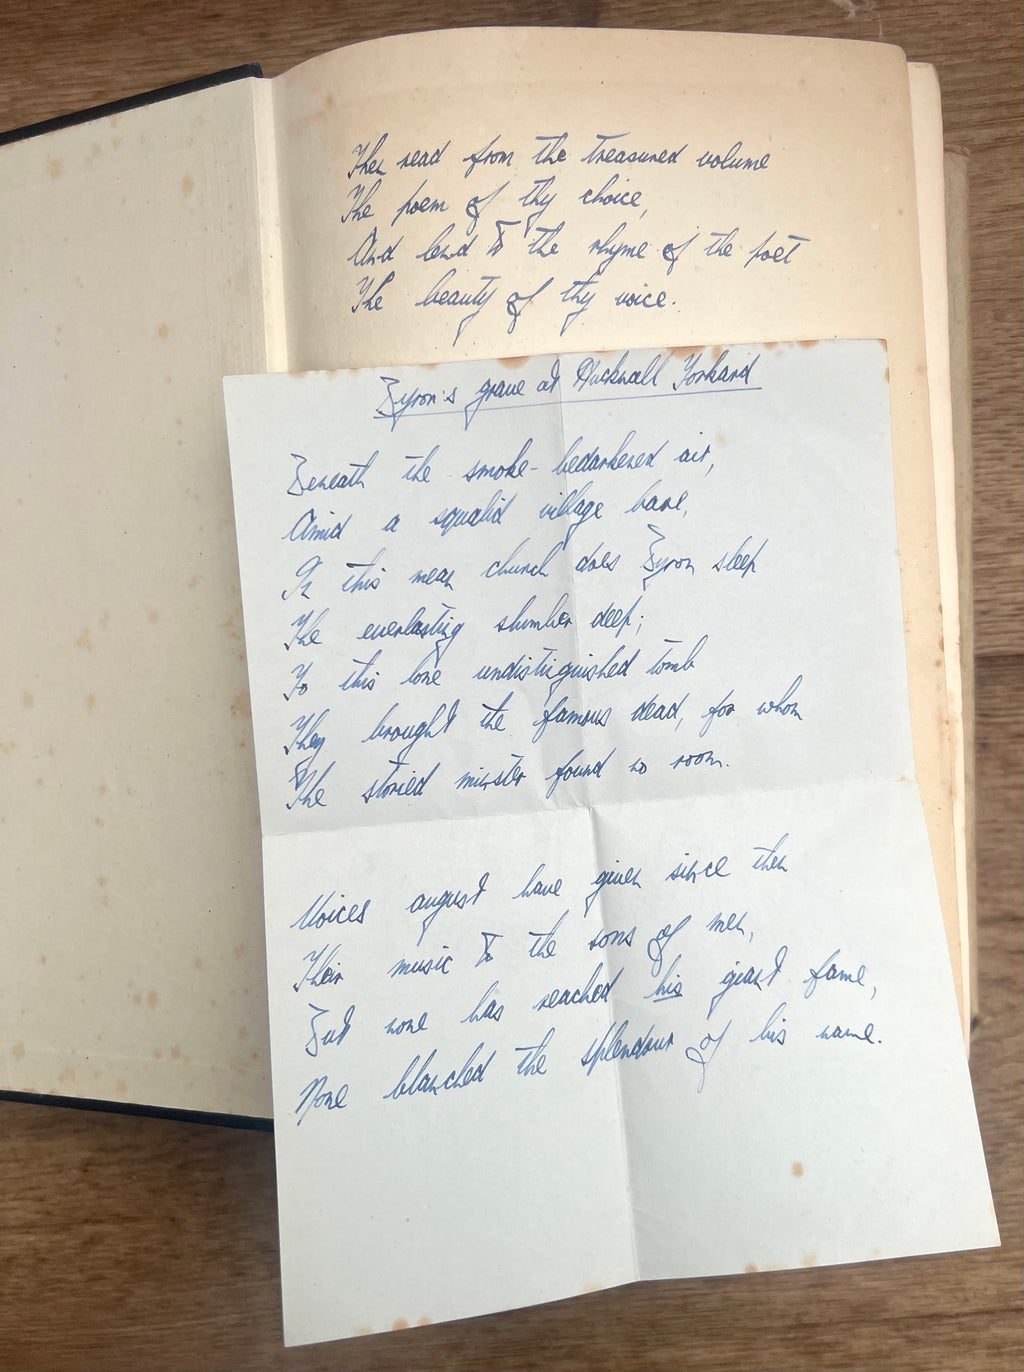 Then read from the treasured volume
The poem of thy choice,
And lend to the rhyme of the poet
The beauty of thy voice.
Byron's grave at Hucknall Torkard
Beneath the smoke-bedarkened air,
Amid a squalid village bare,
In this mean church does Byron sleep
The everlasting slumber deep;
To this lone undistinguished tomb
They brought the famous dead, for whom
The storied minster found no room.
Voices august have given since then
Their music to the sons of men,
But none has reached his giant fame,
None blanched the splendour of his name.